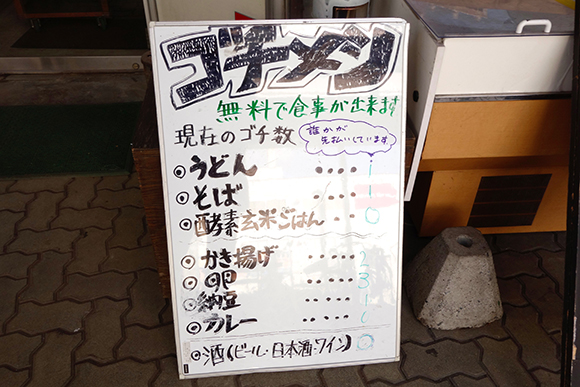 ゴチメン
無料で食事が出来ます
現在のゴチ数
誰かが
先払いしています
◎うどん ・・・・ 1
◎そば ・・・・ 1
◎酵素玄米ごはん ・・ 0
◎かき揚げ ・・・・・ 2
◎卵 ・・・・・ 3
◎納豆 ・・・・・
◎カレー ・・・・・
◎酒(ビール・日本酒・ワイン) 0